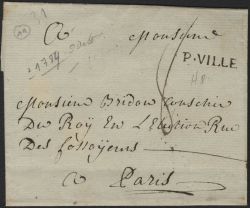 A Monsieur
P·VILLE
Monsieur Bridou Conseiller
Du Roy En L'Election Rue
Des fossoyeurs
A Paris